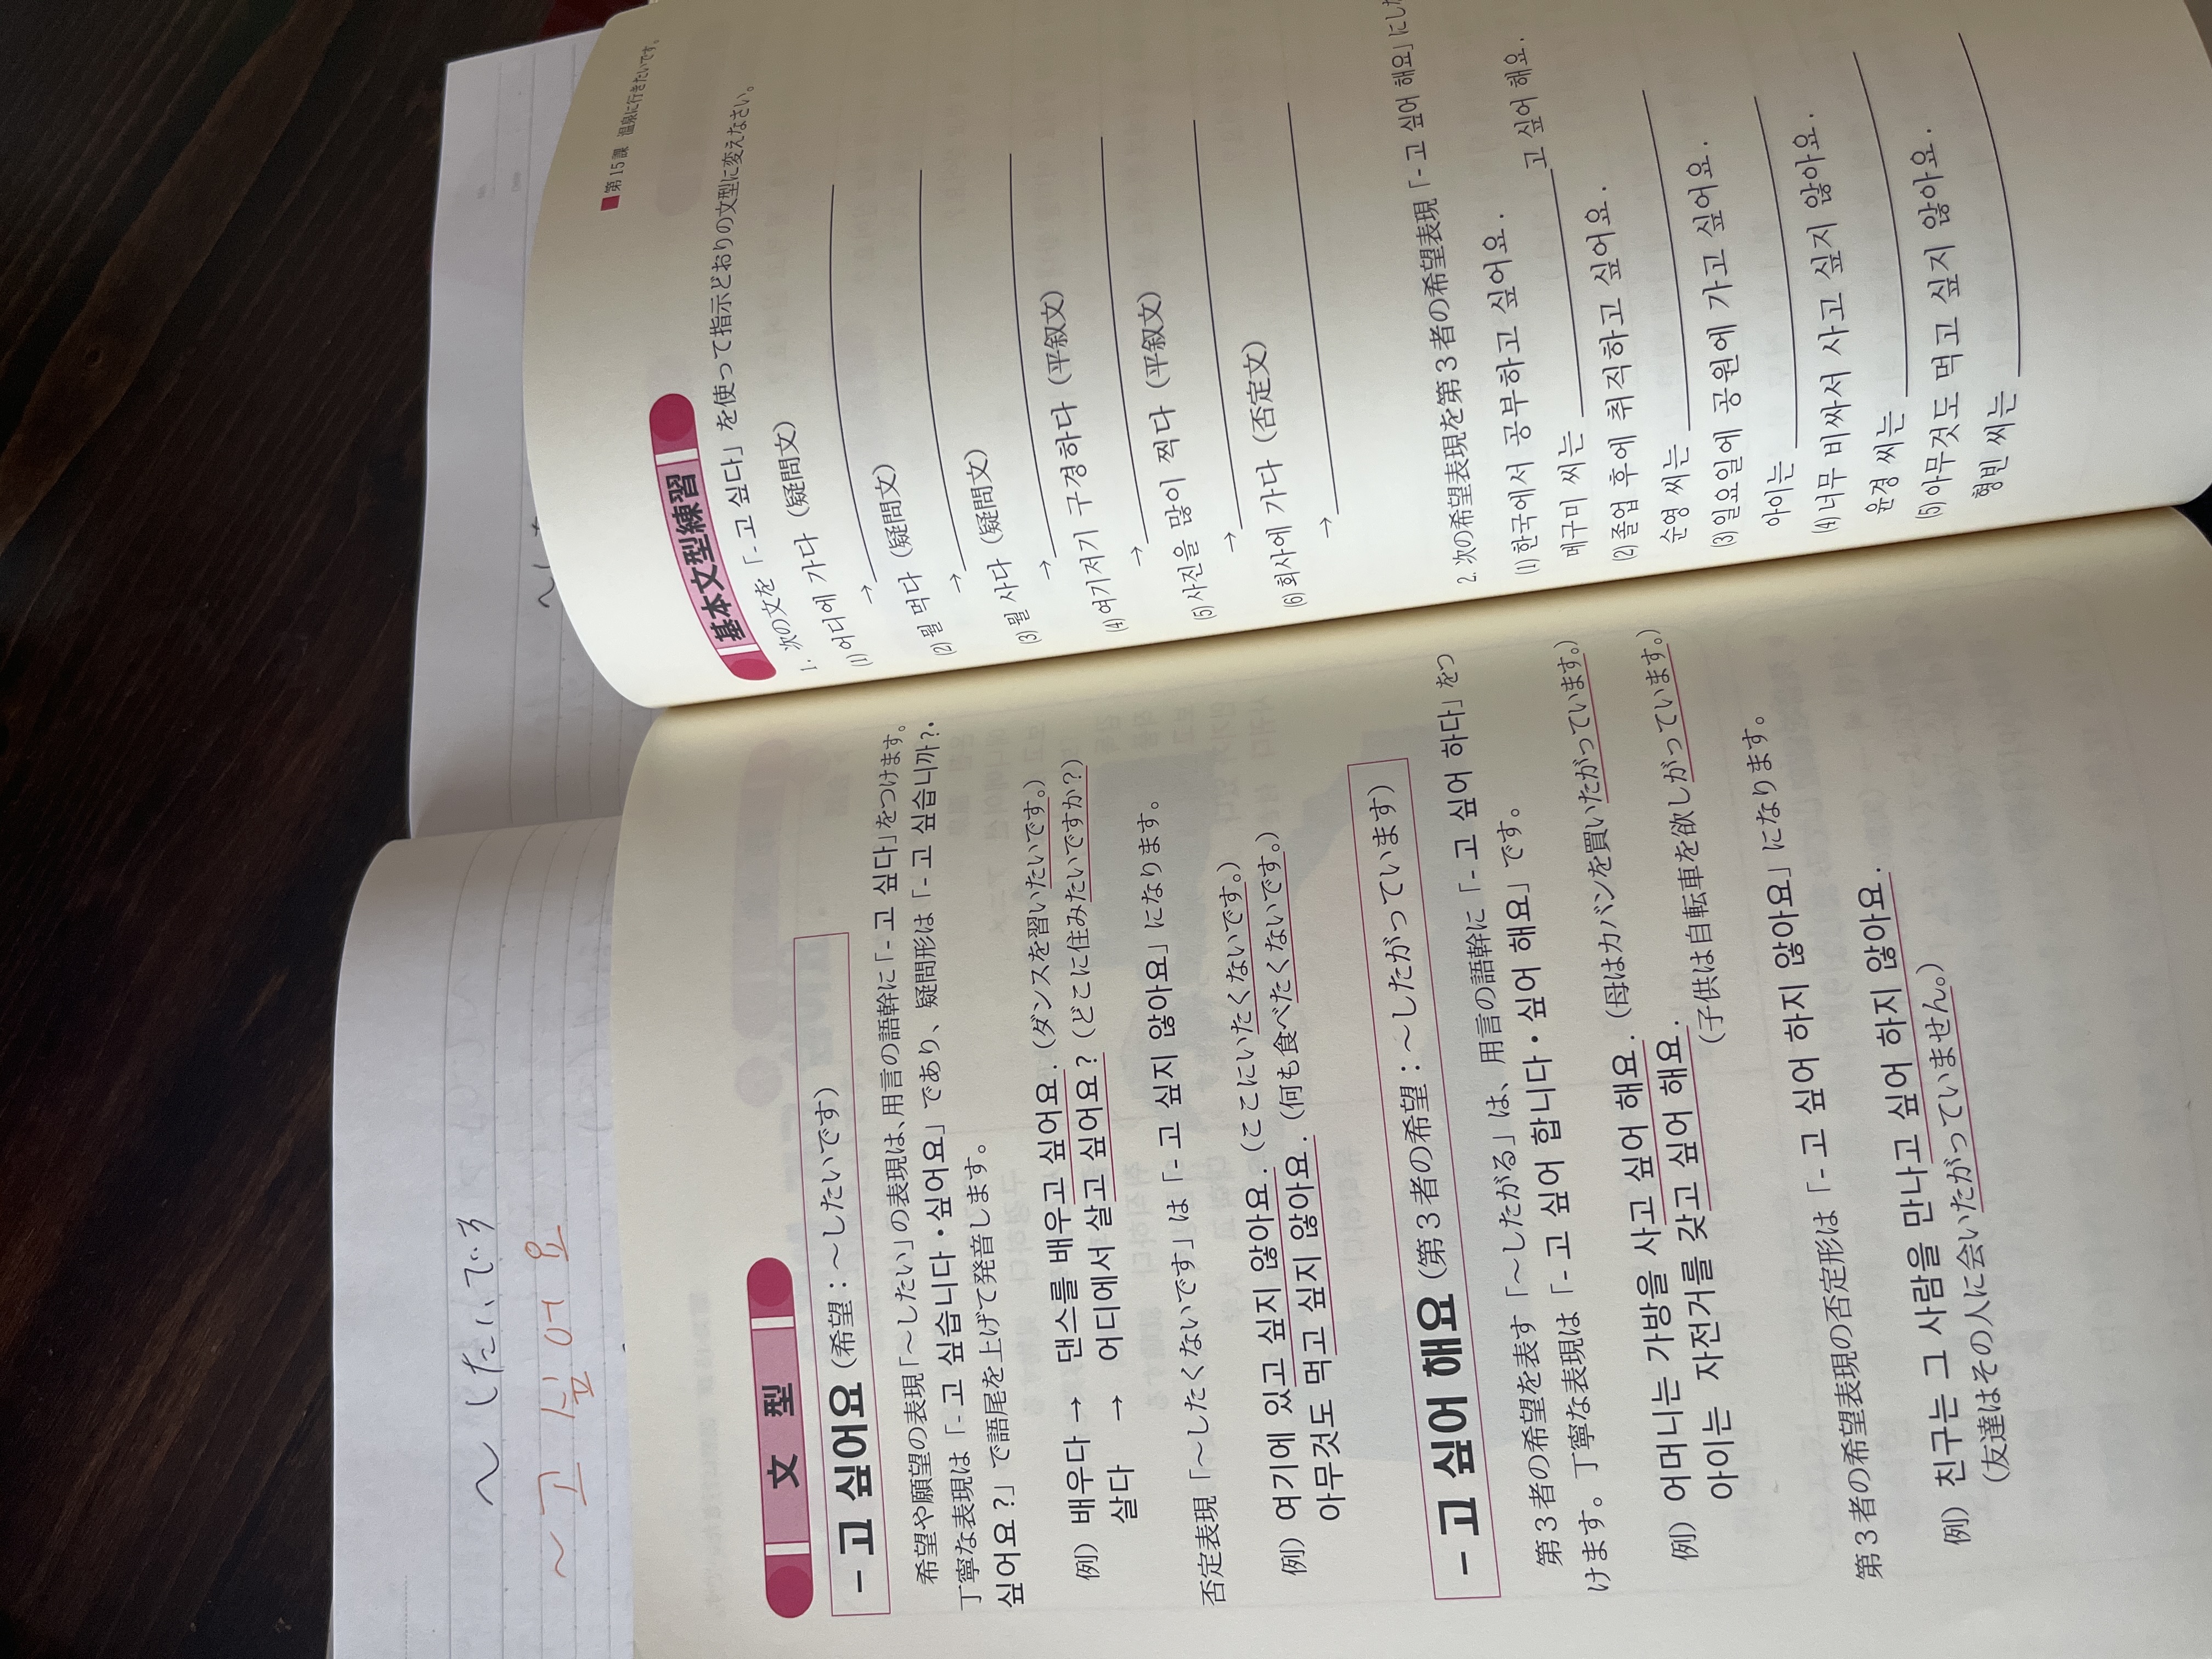 ～したいです
～고 싶어 요
文 型
- 고 싶어요 (希望：～したいです)
希望や願望の表現「～したい」の表現は、用言の語幹に「- 고 싶다」をつけます。
丁寧な表現は「- 고 싶습니다・싶어요」であり、疑問形は「- 고 싶습니까?・
싶어요？」で語尾を上げて発音します。
例）배우다 → 댄스를 배우고 싶어요.（ダンスを習いたいです。）
살다 → 어디에서 살고 싶어요？（どこに住みたいですか？）
否定表現「～したくないです」は「- 고 싶지 않아요」になります。
例）여기에 있고 싶지 않아요.（ここにいたくないです。）
아무것도 먹고 싶지 않아요.（何も食べたくないです。）
- 고 싶어 해요 (第３者の希望：～したがっています)
第３者の希望を表す「～したがる」は、用言の語幹に「- 고 싶어 하다」をつ
けます。丁寧な表現は「- 고 싶어 합니다・싶어 해요」です。
例）어머니는 가방을 사고 싶어 해요.（母はカバンを買いたがっています。）
아이는 자전거를 갖고 싶어 해요.
（子供は自転車を欲しがっています。）
第３者の希望表現の否定形は「- 고 싶어 하지 않아요」になります。
例）친구는 그 사람을 만나고 싶어 하지 않아요.
（友達はその人に会いたがっていません。）
■第15課 温泉に行きたいです。
基本文型練習
1. 次の文を「- 고 싶다」を使って指示どおりの文型に変えなさい。
(1) 어디에 가다（疑問文）
→
(2) 뭘 먹다（疑問文）
→
(3) 뭘 사다（疑問文）
→
(4) 여기저기 구경하다（平叙文）
→
(5) 사진을 많이 찍다（平叙文）
→
(6) 회사에 가다（否定文）
→
2. 次の希望表現を第３者の希望表現「- 고 싶어 해요」にし
(1) 한국에서 공부하고 싶어요.
메구미 씨는 고 싶어 해요.
(2) 졸업 후에 취직하고 싶어요.
순영 씨는
(3) 일요일에 공원에 가고 싶어요.
아이는
(4) 너무 비싸서 사고 싶지 않아요.
윤경 씨는
(5) 아무것도 먹고 싶지 않아요.
형빈 씨는